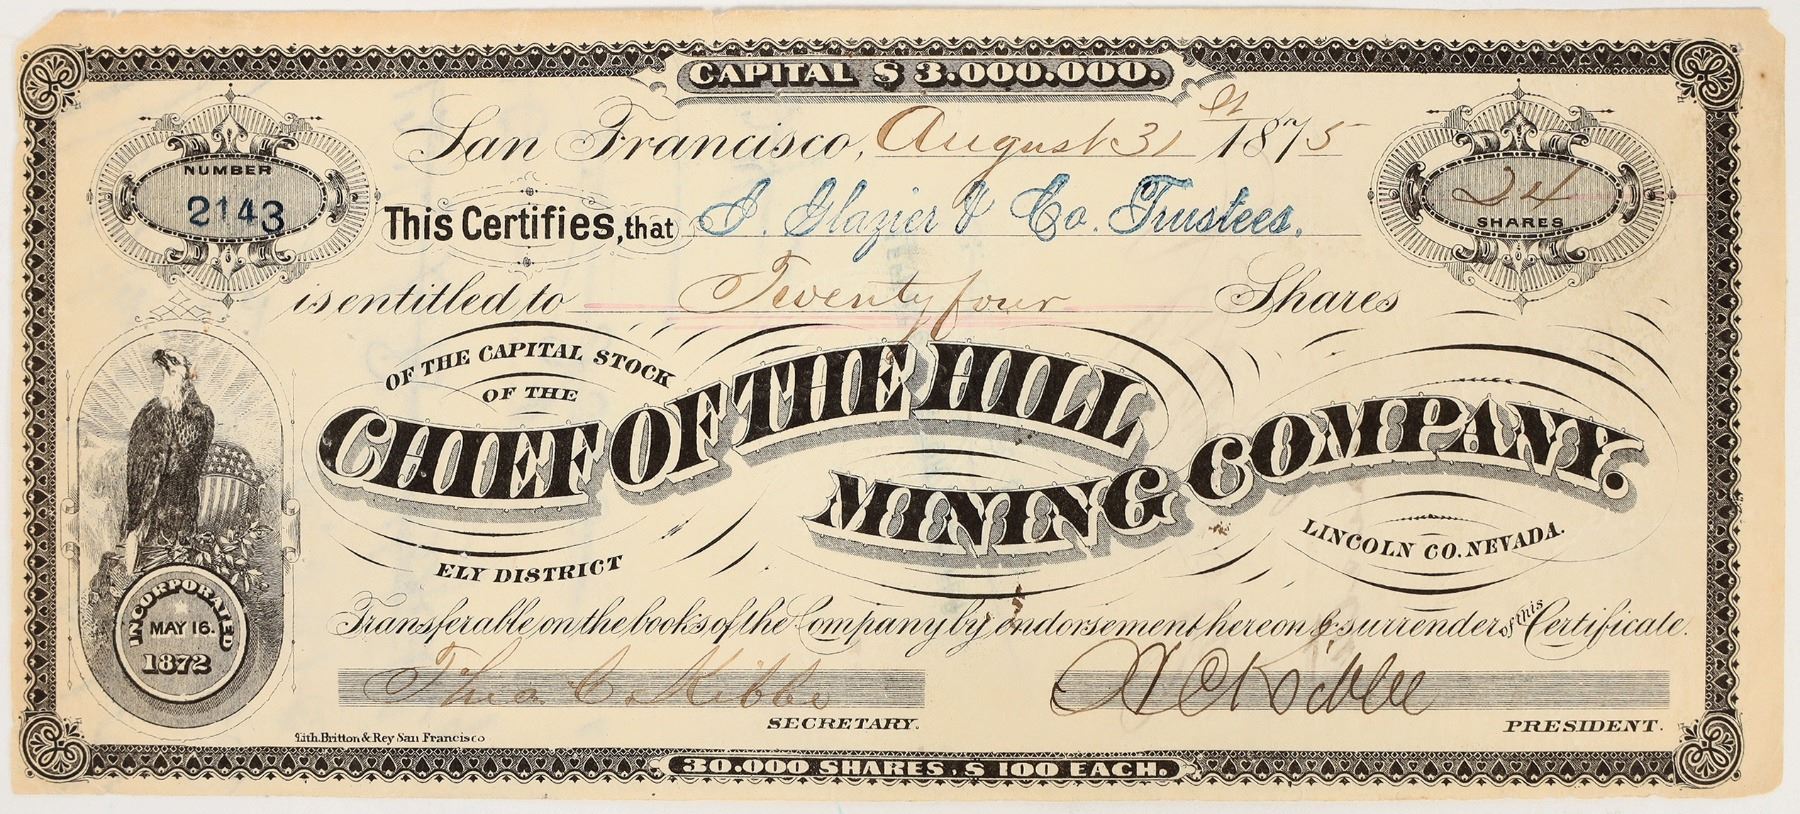 CAPITAL $ 3.000.000.
San Francisco, August 31st 1875
NUMBER
2143
This Certifies, that I. Glazier & Co. Trustees.
24
SHARES
is entitled to Twenty four Shares
OF THE CAPITAL STOCK
OF THE
CHIEF OF THE HILL
MINING COMPANY.
ELY DISTRICT
LINCOLN CO. NEVADA.
INCORPORATED
MAY 16.
1872
Transferable on the books of the Company by endorsement hereon & surrender of this Certificate.
Theo. C. Kibbe
SECRETARY.
Kibbe
PRESIDENT.
Lith. Britton & Rey San Francisco
30.000 SHARES. $ 100 EACH.